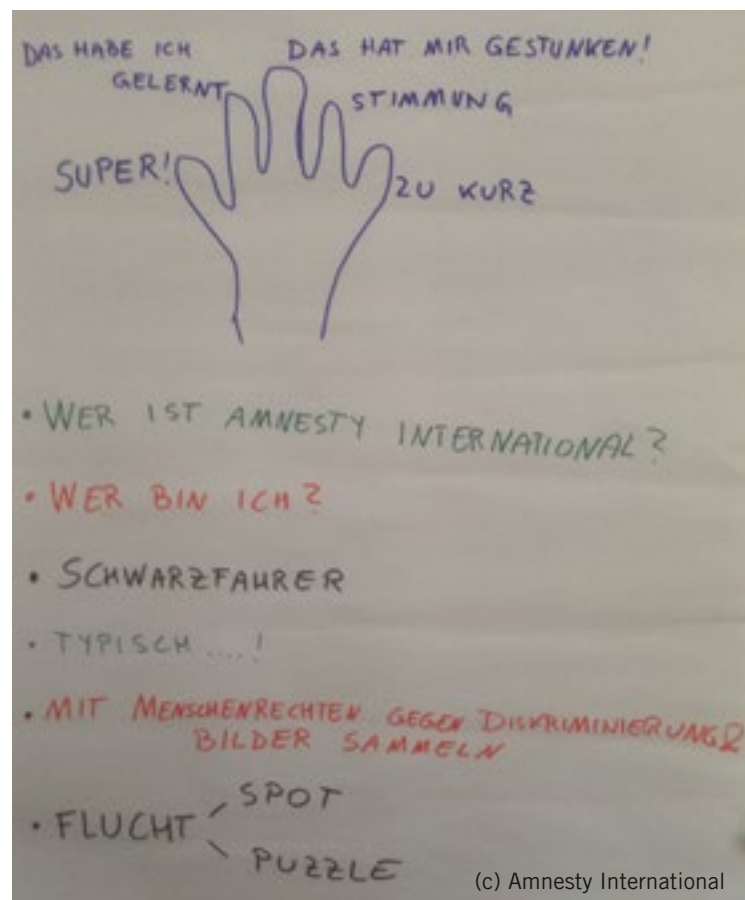 DAS HABE ICH
GELERNT
DAS HAT MIR GESTUNKEN!
STIMMUNG
SUPER!
ZU KURZ
• WER IST AMNESTY INTERNATIONAL?
• WER BIN ICH?
• SCHWARZFAHRER
• TYPISCH ....!
• MIT MENSCHENRECHTEN GEGEN DISKRIMINIERUNG &
BILDER SAMMELN
• FLUCHT
SPOT
PUZZLE
(c) Amnesty International